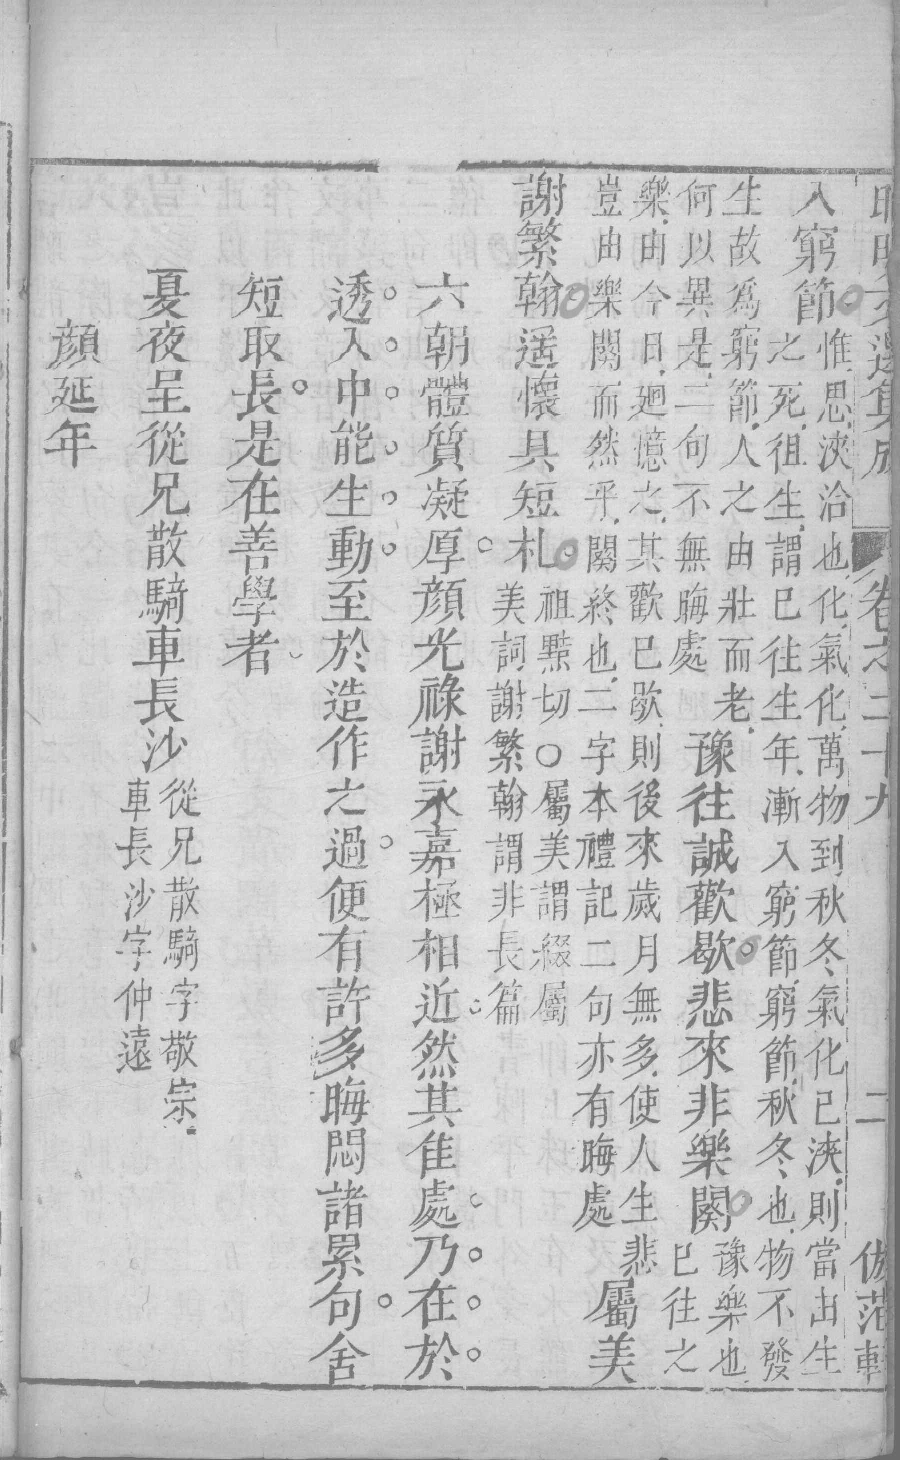 昭明文選集成 卷之二十九 二
入窮節惟思浹洽也化氣化萬物到秋冬氣化已浹則當出生
之死徂生謂已往生年漸入窮節窮節秋冬也物不發
生故爲窮節人之由壯而老豫往誠歡歇悲來非樂闋豫樂也
何以異是二句不無晦處已往之
樂由今日廻憶之其歡已歇則後來歲月無多使人生悲
豈由樂闋而然乎闋終也二字本禮記二句亦有晦處屬美
謝繁翰遥懷具短札祖黠切○屬美謂綴屬
美詞謝繁翰謂非長篇
六朝體質凝厚顔光祿謝永嘉極相近然其隹處乃在於
透入中能生動至於造作之過便有許多晦悶諸累句舍
短取長是在善學者
夏夜呈從兄散騎車長沙從兄散騎字敬宗
車長沙字仲遠
顔延年